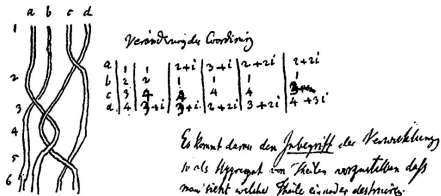 a b c d
1
2
3
4
5
6
Veränderung der Coordinirung
a | 1 | 1 | 2+i | 3+i | 2+2i | 2+2i
b | 2 | 2 | 1 | 1 | 1 | 1
c | 3 | 4 | 4 | 4 | 4
d | 4 | 3+i | 3+i | 2+2i | 3+2i | 4+3i
Es kommt darum den Inbegriff der Verwickelung
so als Aggregat von Theilen vorzustellen daß
man sieht welche Theile einander destruiren